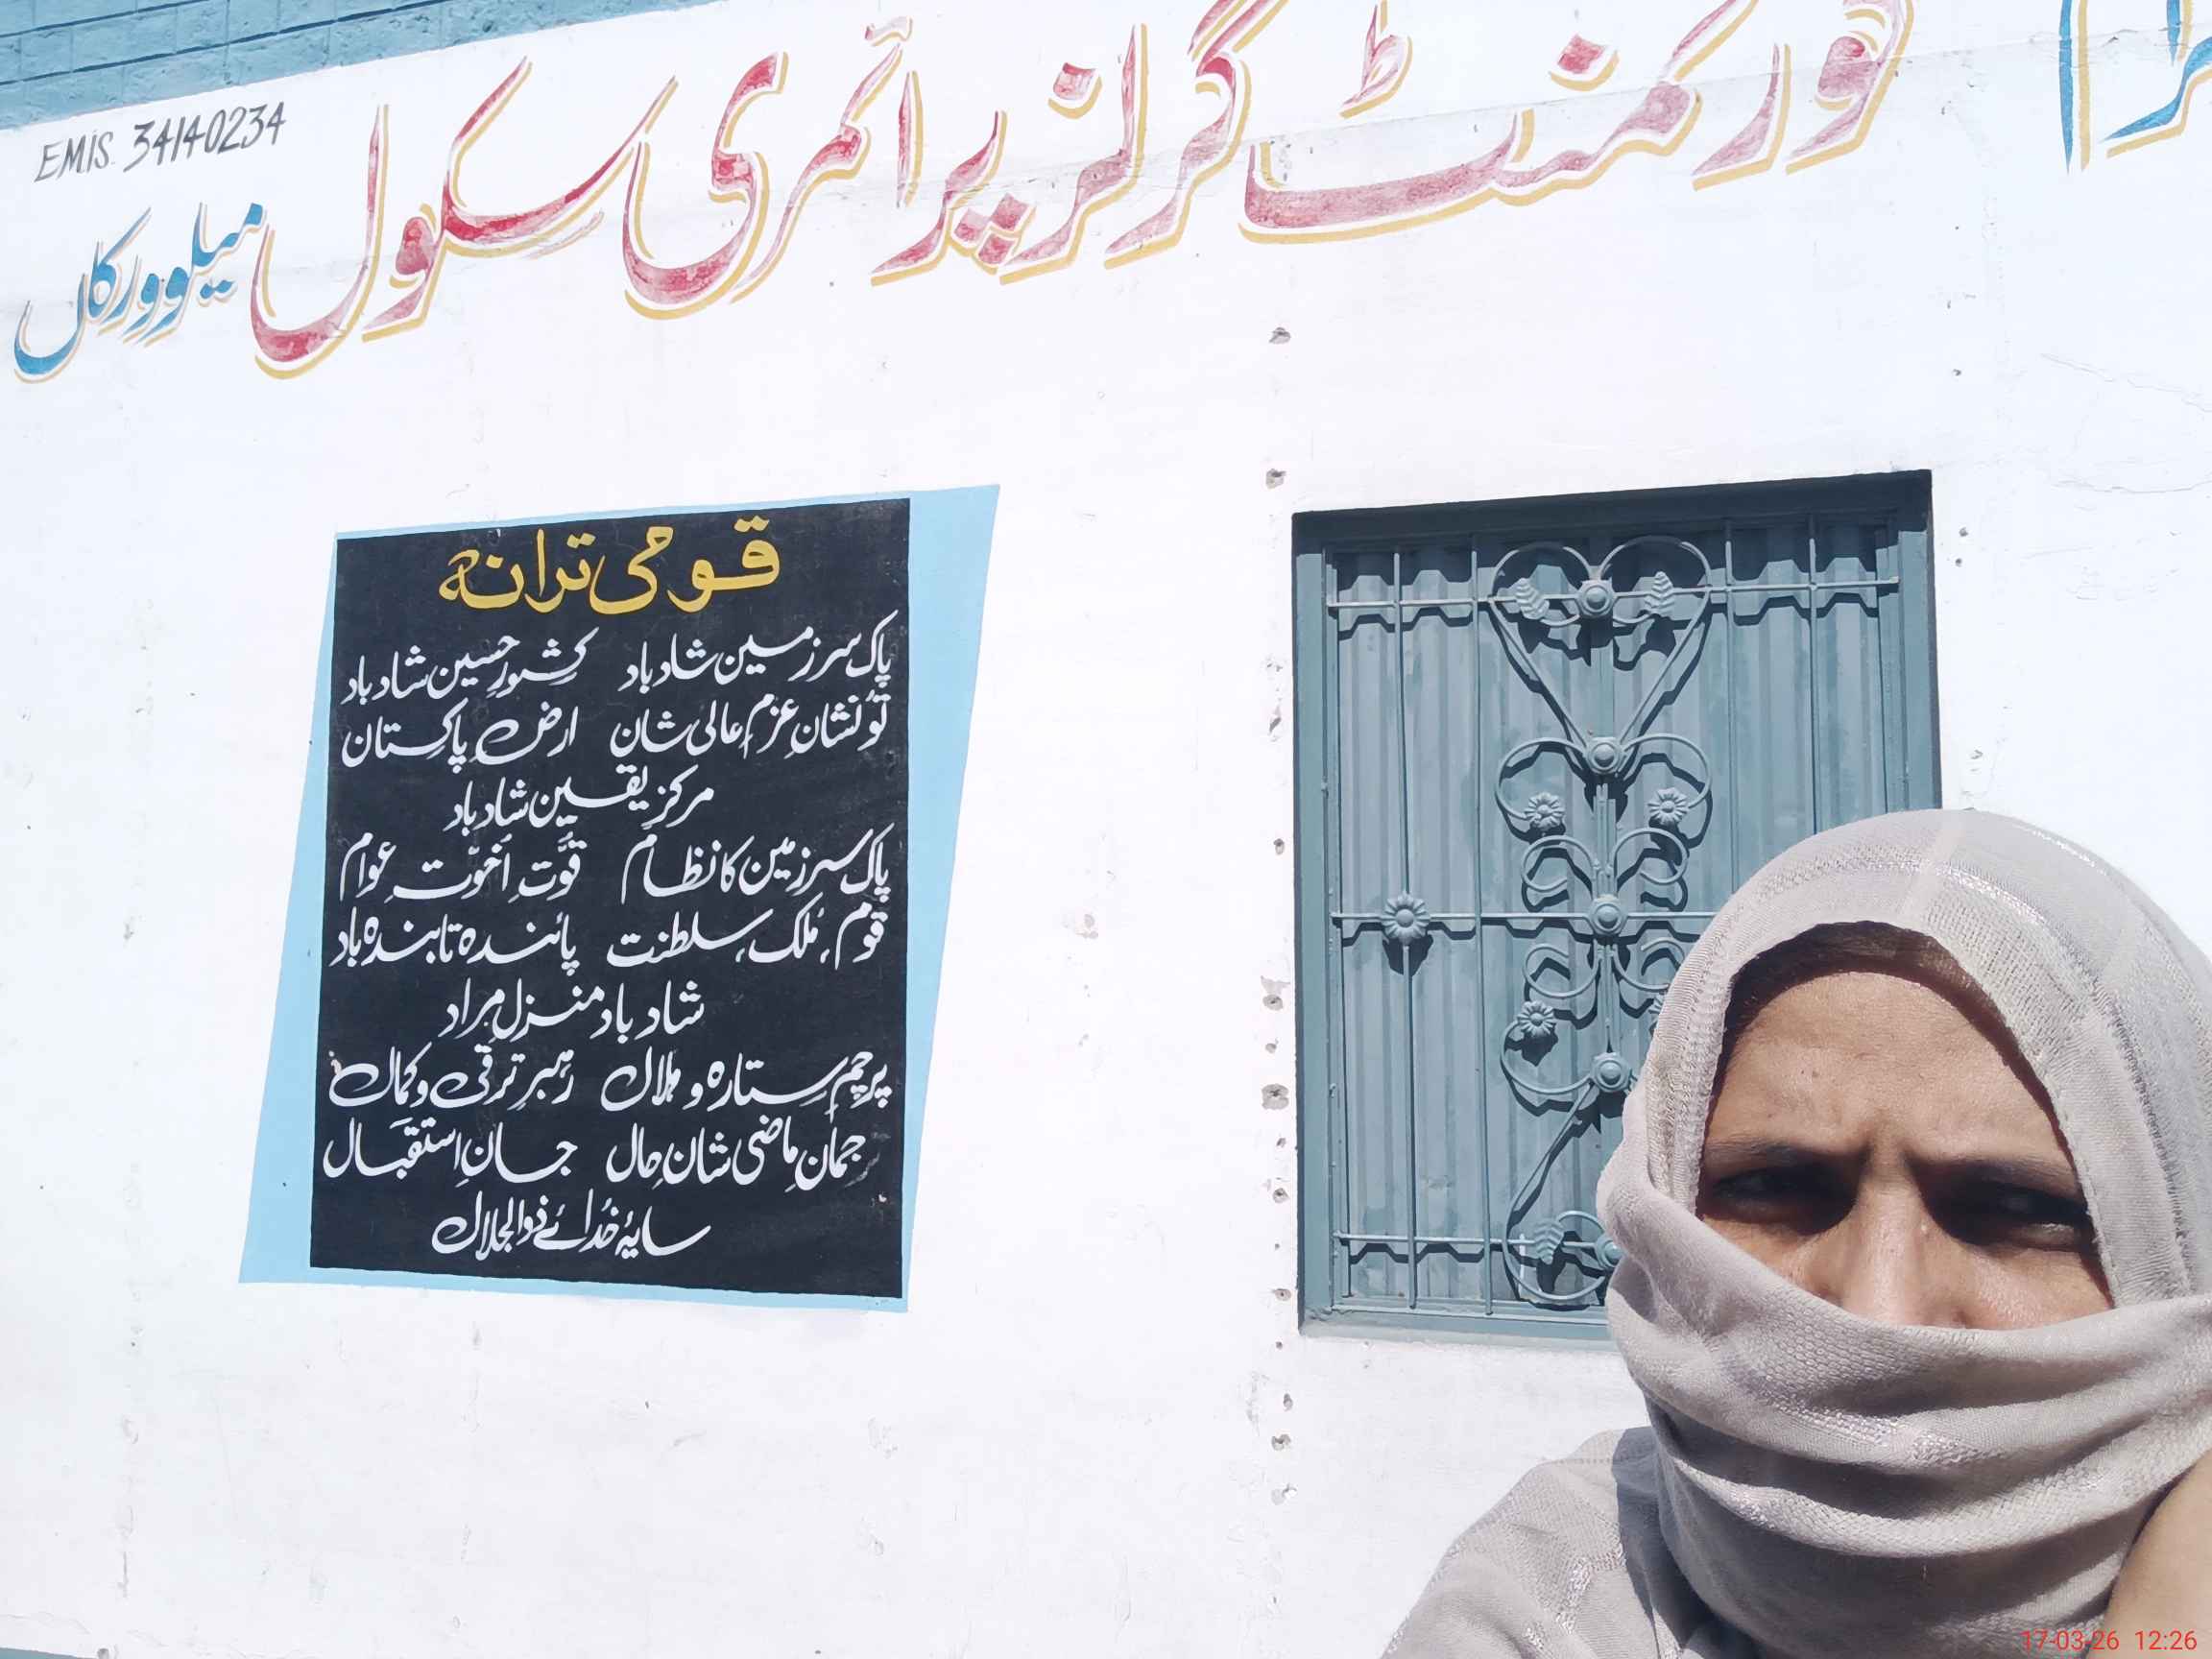 گورنمنٹ گرلز پرائمری سکول میلو ورکاں
EMIS 34140234
قومی ترانہ
پاک سرزمین شاد باد کشورِ حسین شاد باد
تُو نشانِ عزمِ عالی شان ارضِ پاکستان
مرکزِ یقین شاد باد
پاک سرزمین کا نظام قوّتِ اُخوّتِ عوام
قوم، مُلک، سلطنت پائندہ تابندہ باد
شاد باد منزلِ مراد
پرچمِ ستارہ و ہلال رہبرِ ترقی و کمال
ترجمانِ ماضی شانِ حال جانِ استقبال
سایۂ خدائے ذوالجلال
17-03-26 12:26